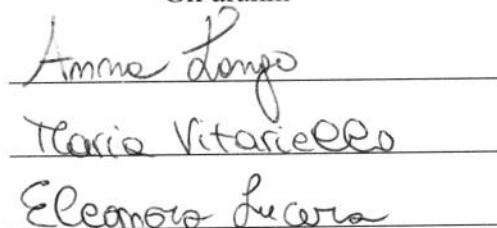 Anna Longo
Maria Vitariello
Eleonora Lucera